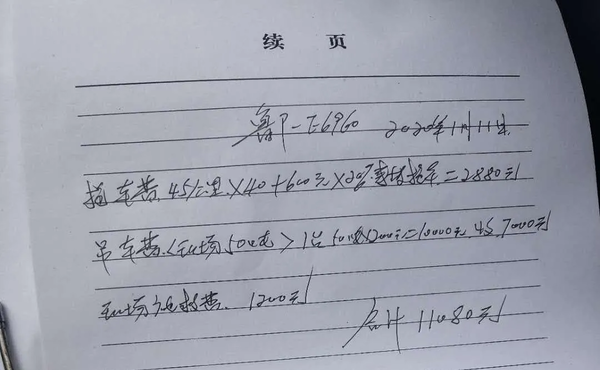 续 页
鲁P-E6960 2020年1月11号
拖车费.45公里×40+600元×20%事故拖车=2880元
吊车费.<现场50吨>1台50吨×200元=10000元.收7000元
现场施救费.1200元
合计11080元